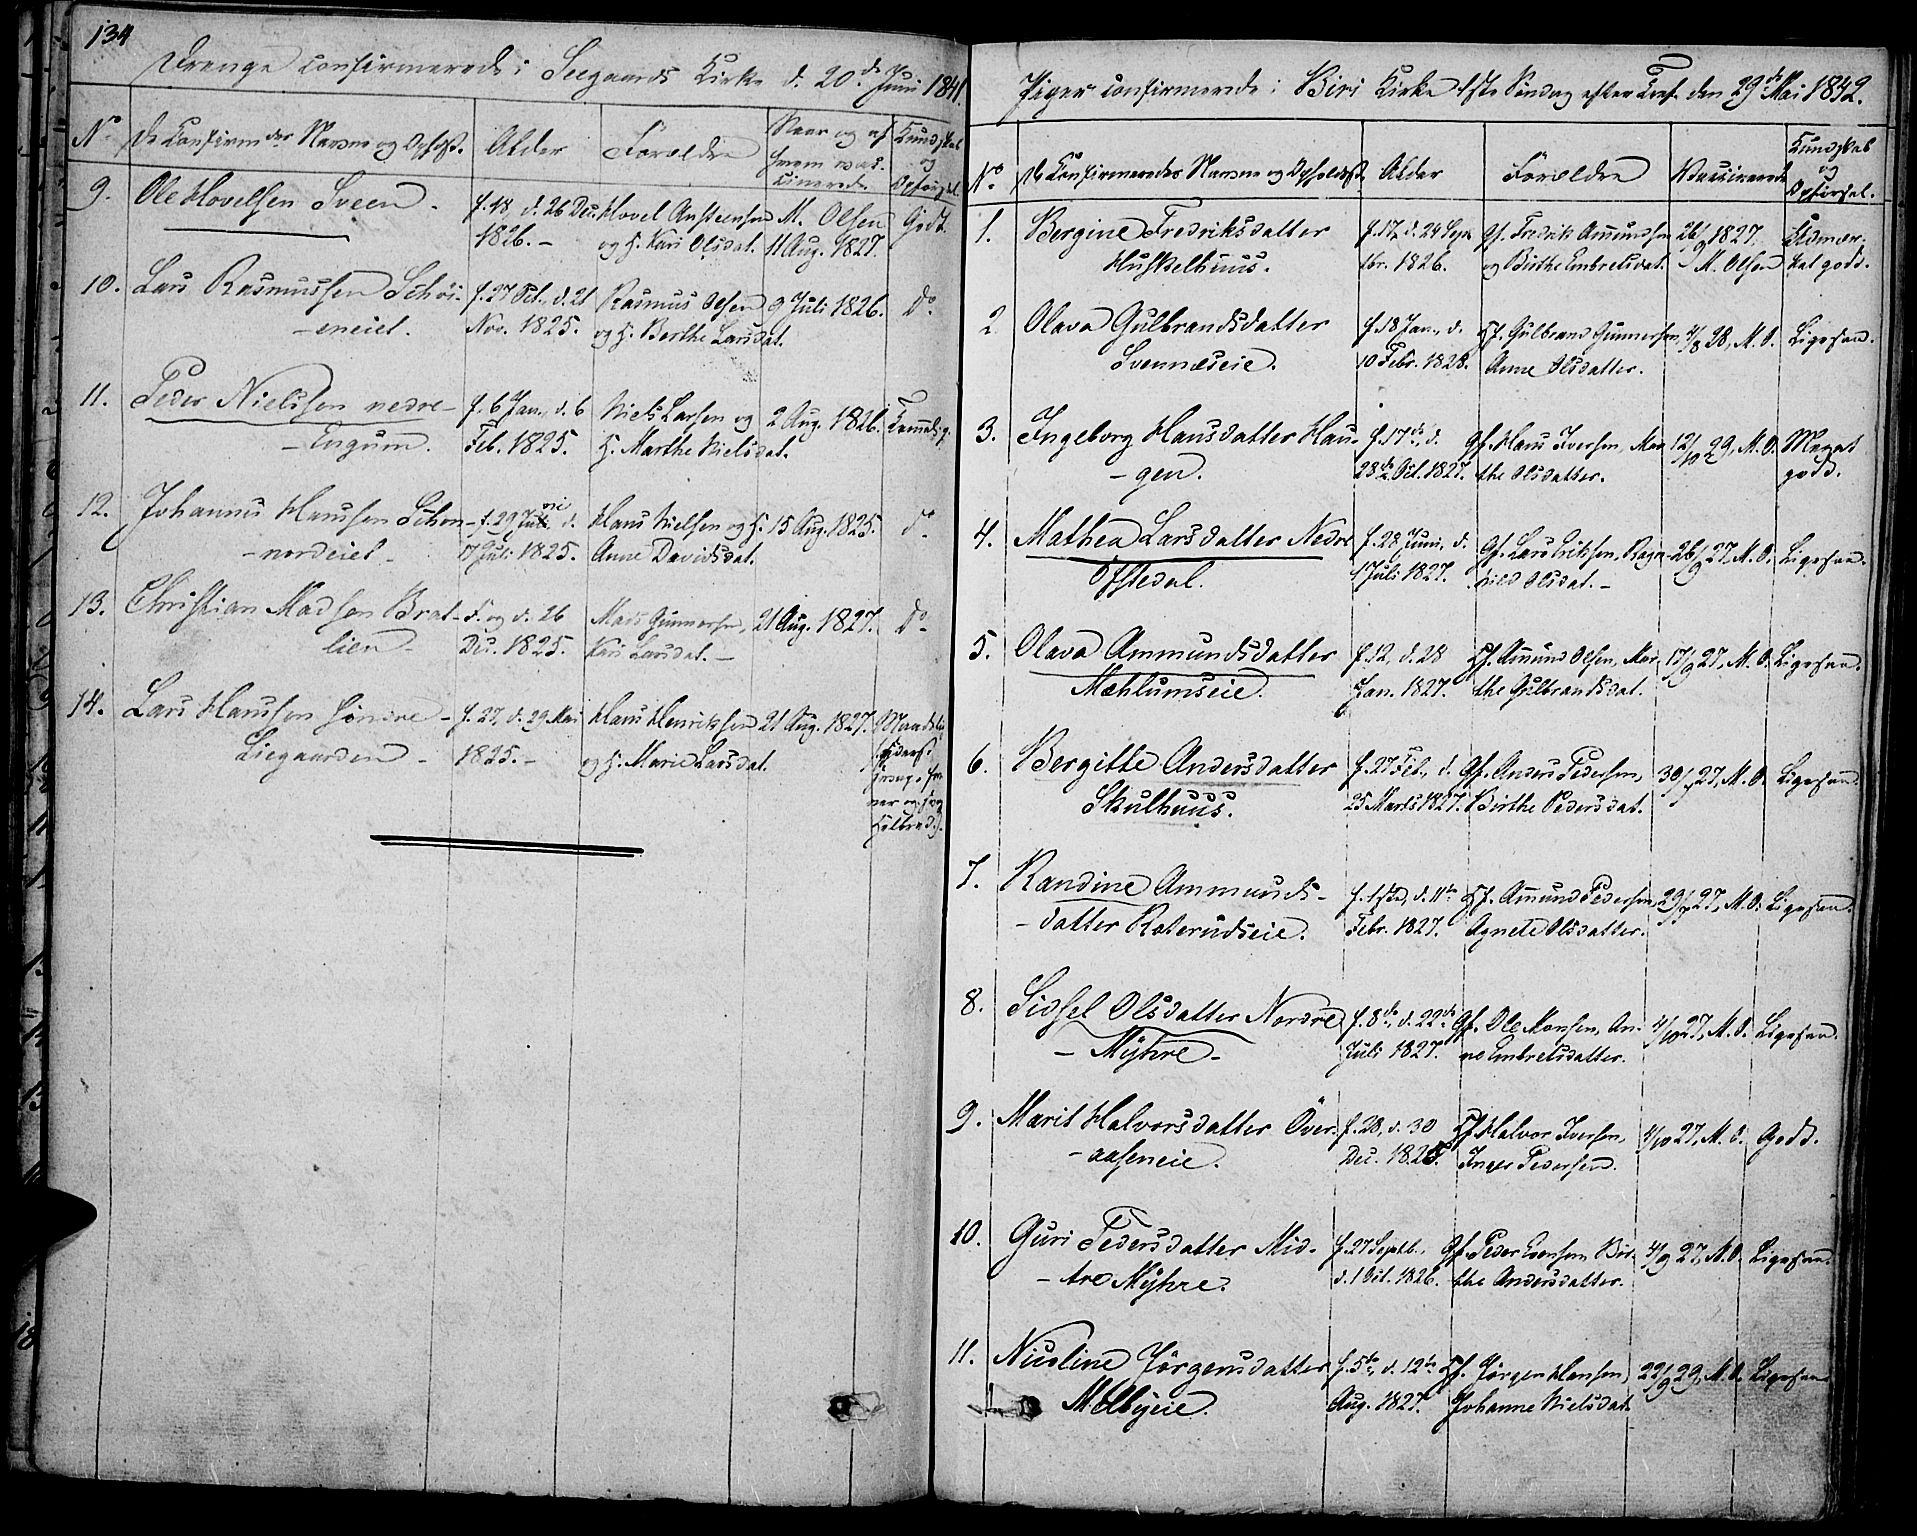 134
Drenge confirmerede i Seegaards Kirke d. 20de Juni 1841.
No
De Confirmerdes Navne og Opholdst.
Alder
Forældre
Naar og af hvem vaccinerede
Kundskab og Opførsel
9.
Ole Hovelsen Sveen.
f. 18, d. 26 Dec. 1826.
Hovel Anstensen og H. Kari Olsdat.
M. Olsen 11 Aug. 1827.
Godt.
10.
Lars Rasmussen Schöi-
eneiet.
f. 27 Oct., d. 21 Nov. 1825.
Rasmus Olsen og H. Berthe Larsdat.
9 Juli 1826.
Do.
11.
Peder Nielsen nedre-
Engum.
f. 6 Jan., d. 6 Feb. 1825.
Niels Larsen og H. Marthe Nielsdat.
2 Aug. 1826.
12.
Johannes Hansen
nordeiet
d. 17 Juli 1825.
Hans Nielsen og H. Anne Davidsdat.
15 Aug. 1825.
Do.
13.
Christian Madsen Brat-
lien
f. og d. 26 Dec. 1825.
Mads Gunnersen, Kari Larsdat.
21 Aug. 1827.
Do
14.
Lars Hansen söndre
Liegaarden
f. 27, d. 29 Mai 1825.
Hans Henriksen og H. Marie Larsdat.
21 Aug. 1827.
Piger confirmerede i Biri Kirke 1ste Söndag efter Tref. den 29de Mai 1842.
No.
De Confirmeredes Navne og Opholdsst.
Alder
Forældre
Vaccinerede
Kundskab og Opførsel.
1.
Bergine Fredriksdatter
Huskelhuus.
f. 17, d. 24 Septbr. 1826.
Gf. Fredrik Amundsen og Birthe Embretsdat.
26/9 1827. M. Olsen
Udmærket godt.
2
Olava Gulbrandsdatter
Svennæseie.
f. 18 Jan., d. 10 Febr. 1828.
Hf. Gulbrand Gunnersen, Anne Olsdatter.
4/8 28, M. O.
Ligesaa.
3.
Ingeborg Hansdatter Hau-
gen.
f. 17de, d. 28de Oct. 1827.
Gf. Hans Iversen, Marthe Olsdatter.
12/10 29, M. O.
Meget godt.
4.
Mathea Larsdatter Nedre
Ofstedal.
f. 28 Juni, d. 1 Juli 1827.
Gf. Lars Eriksen, Ragnild Olsdat.
26/9 27, M. O.
Ligesaa.
5.
Olava Ammundsdatter
Mæhlumseie.
f. 12, d. 28 Jan. 1827.
Hf. Amund Olsen, Marthe Gulbrandsdat.
17/9 27, M. O.
Ligesaa.
6.
Bergitte Andersdatter
Skulhuus.
f. 27 Feb., d. 25 Marts 1827.
Gf. Anders Pedersen, Birthe Pedersdat.
30/7 27, M. O.
Ligesaa.
7.
Randine Ammunds-
datter Roterudseie.
f. 1ste, d. 11te Febr. 1827.
Hf. Amund Pedersen, Agnete Olsdatter.
29/7 27, M. O.
Ligesaa.
8.
Sidsel Olsdatter Nordre
Myhre
f. 8de, d. 22de Juli 1827.
Gf. Ole Monsen, Anne Embretsdatter.
4/10 27, M. O.
Ligesaa.
9.
Marit Halvorsdatter Över-
aaseneie.
f. 28, d. 30 Dec. 1826.
Hf. Halvor Iversen, Inger Pedersen.
4/10 27, M. O.
Godt.
10.
Guri Pedersdatter Mid-
tre Myhre.
f. 27 Septb., d. 1 Oct. 1826.
Gf. Peder Evensen Birthe Andersdatter.
4/9 27, M. O.
Ligesaa.
11.
Nicoline Jörgensdatter
Melbyeie.
f. 5te, d. 12te Aug. 1827.
Hf. Jörgen Hansen, Johanne Nielsdat.
22/9 29, M. O.
Ligesaa.